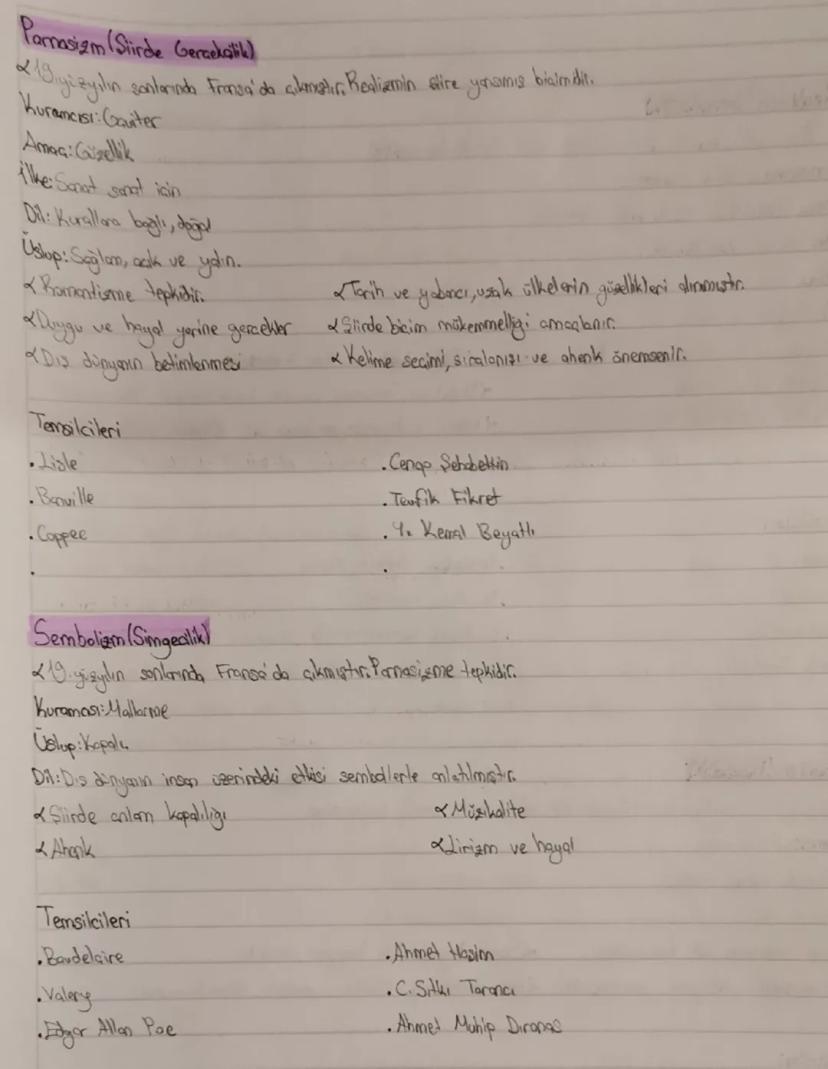 Parnasizm (Şiirde Gerçekçilik)
α 19. yüzyılın sonlarında Fransa'da çıkmıştır. Realizmin şiire yansımış biçimidir.
Kuramcısı: Gauiter
Amaç: Güzellik
İlke: Sanat sanat için
Dil: Kurallara bağlı, doğal
Üslup: Sağlam, açık ve yalın.
α Romantizme tepkidir.
α Tarih ve yabancı, uzak ülkelerin güzellikleri alınmıştır.
α Duygu ve hayal yerine gerçekler
α Şiirde biçim mükemmelliği amaçlanır.
α Dış dünyanın betimlenmesi
α Kelime seçimi, sıralanışı ve ahenk önemsenir.
Temsilcileri
. Lisle
. Cenap Şehabettin
. Banville
. Tevfik Fikret
. Coppee
. Y. Kemal Beyatlı
.
.
Sembolizm (Simgecilik)
α 19. yüzyılın sonlarında Fransa'da çıkmıştır. Parnasizme tepkidir.
Kuramcısı: Mallarme
Üslup: Kapalı
Dil: Dış dünyanın insan üzerindeki etkisi sembollerle anlatılmıştır.
α Şiirde anlam kapalılığı
α Müzikalite
α Ahenk
α Lirizm ve hayal
Temsilcileri
. Baudelaire
. Ahmet Haşim
. Valery
. C. Sıtkı Tarancı
. Edgar Allan Poe
. Ahmet Muhip Dıranas